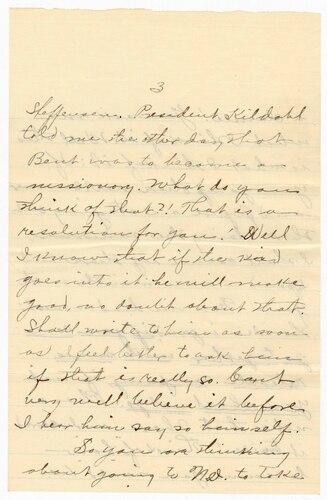 3
Steffensen. President Kildahl
told me the other day that
Bent was to become a
missionary. What do you
think of that?! That is a
resolution for you! Well
I know that if the kid
goes into it he will make
good, no doubt about that.
Shall write to him as soon
as I feel better to ask him
if that is really so. Cant
very well believe it before
I hear him say so himself.
So you are thinking
about going to N.D. to take